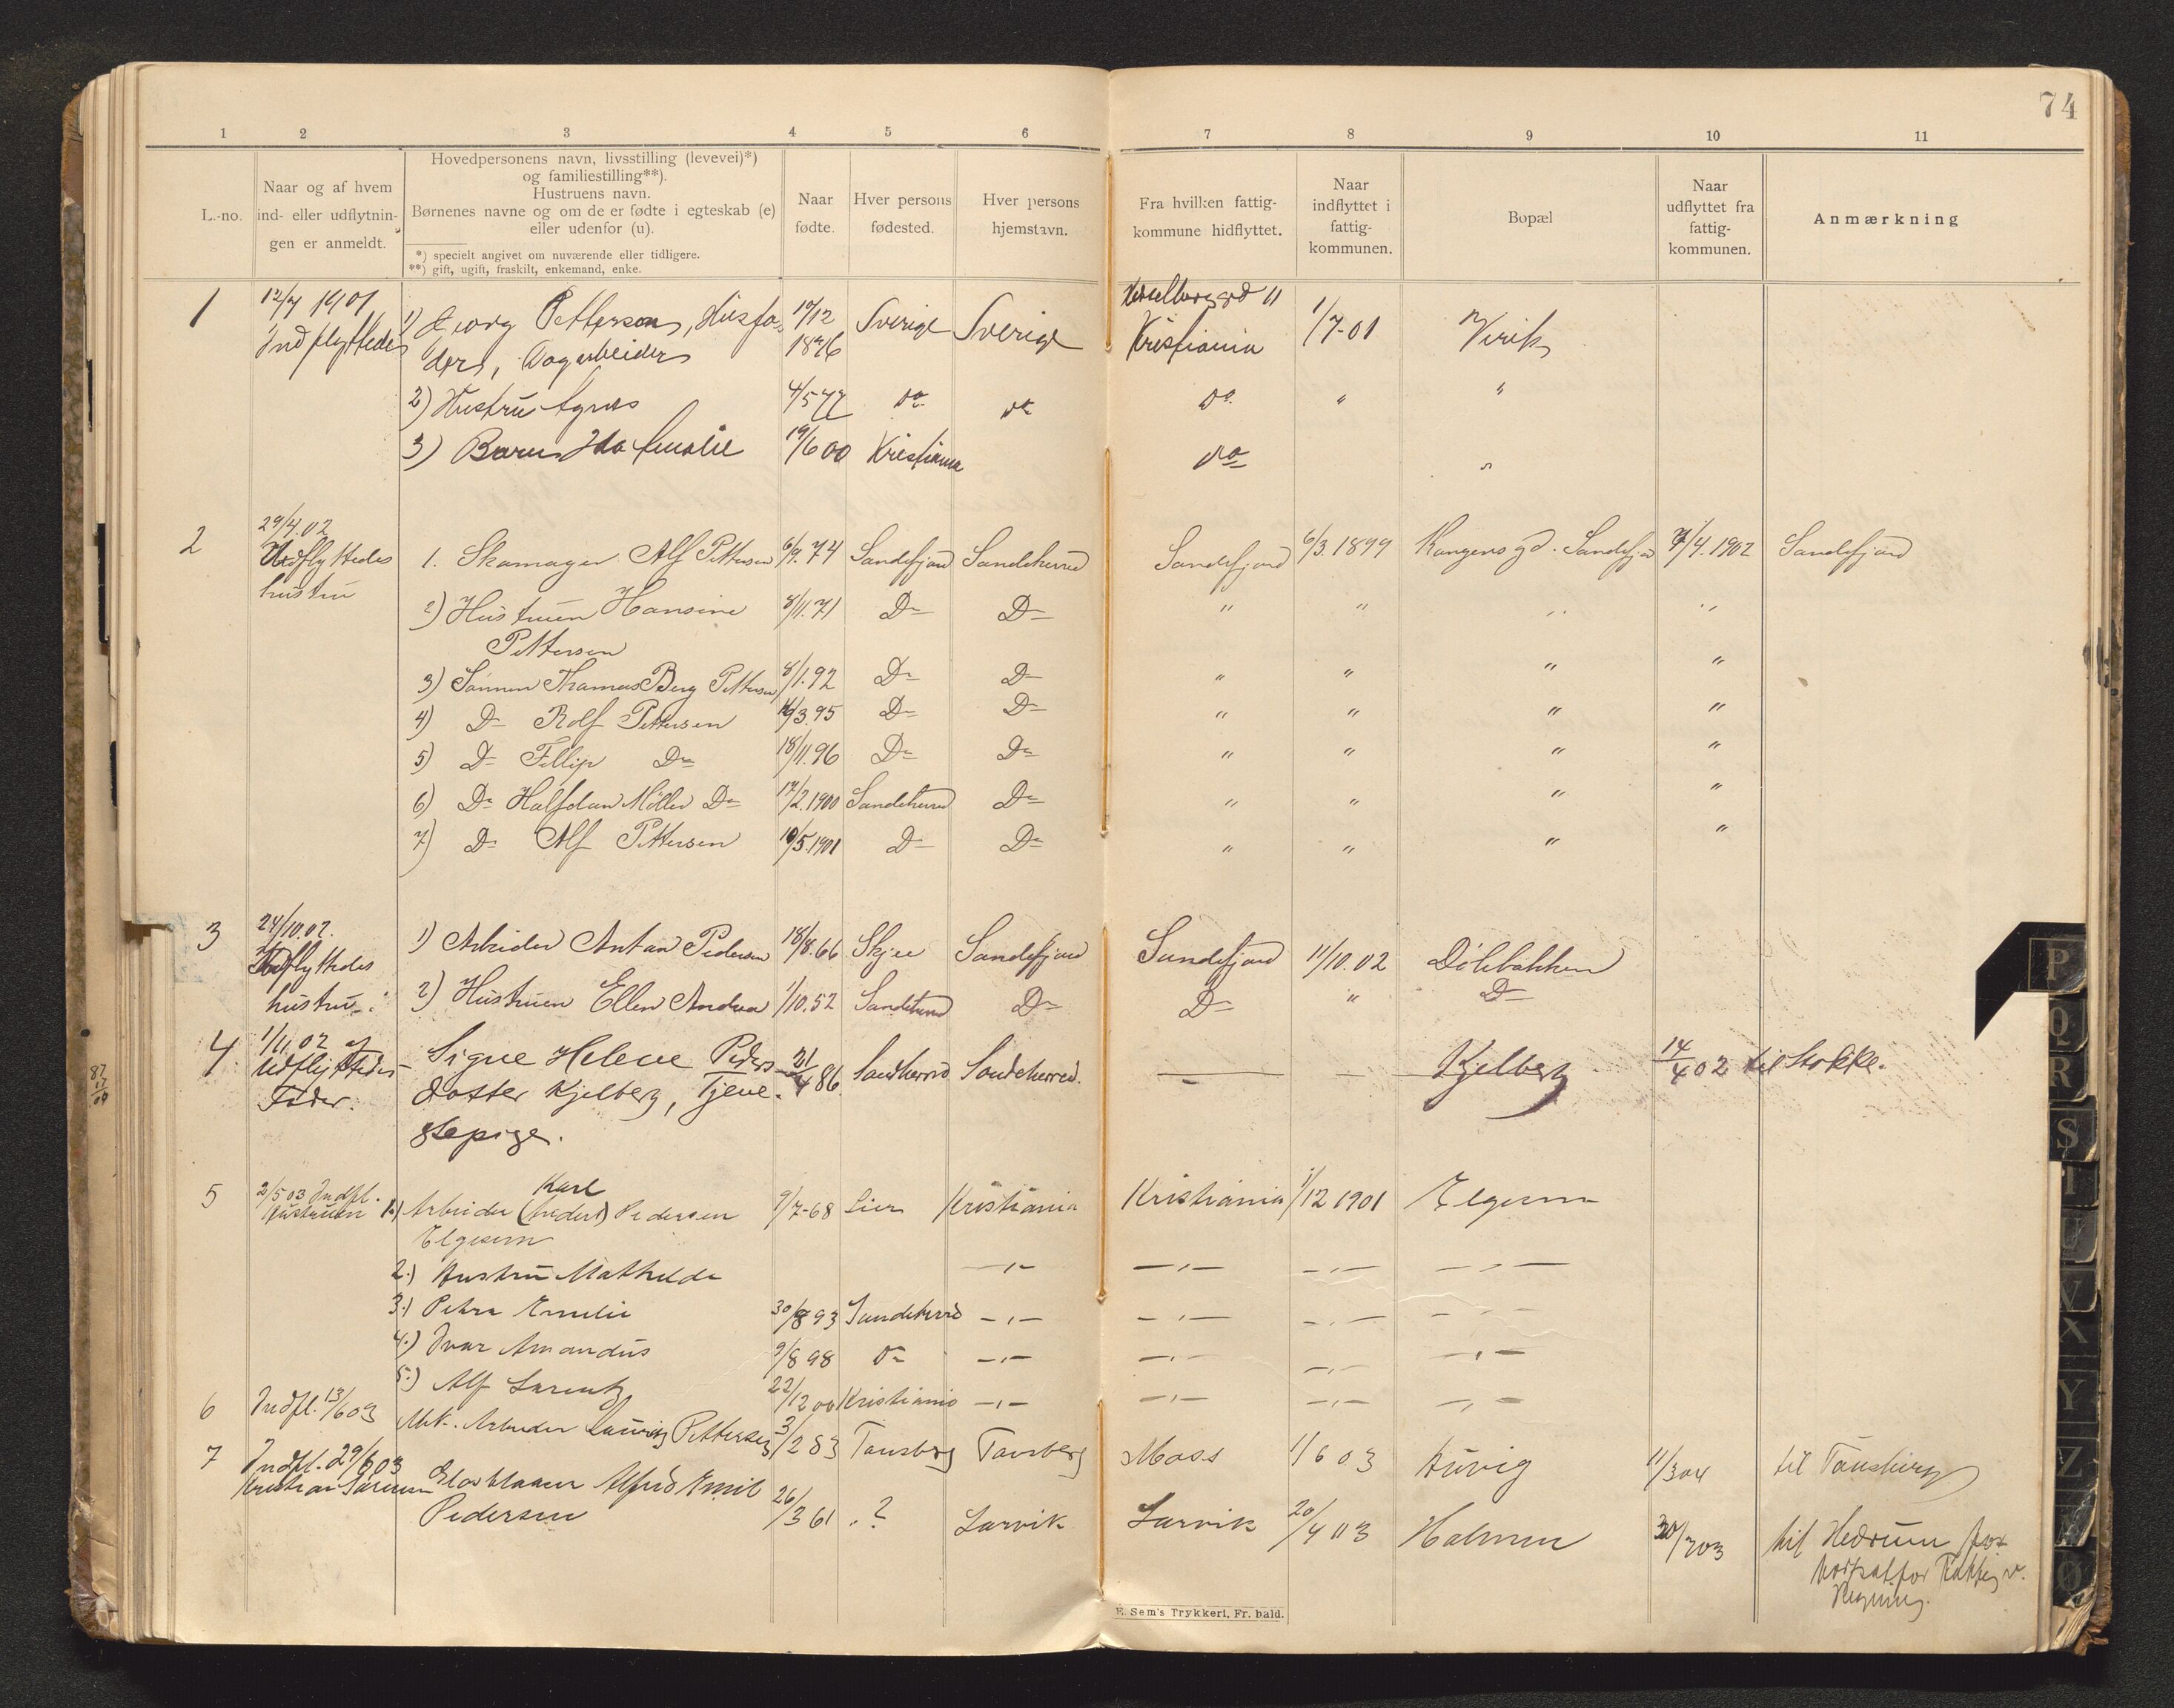 74
1 2 3 4 5 6 7 8 9 10 11
L.-no.
Naar og af hvem
ind- eller udflytnin-
gen er anmeldt.
Hovedpersonens navn, livsstilling (levevei)*)
og familiestilling**).
Hustruens navn.
Børnenes navne og om de er fødte i egteskab (e)
eller udenfor (u).
*) specielt angivet om nuværende eller tidligere.
**) gift, ugift, fraskilt, enkemand, enke.
Naar
fødte.
Hver persons
fødested.
Hver persons
hjemstavn.
Fra hvilken fattig-
kommune hidflyttet.
Naar
indflyttet i
fattig-
kommunen.
Bopæl
Naar
udflyttet fra
fattig-
kommunen.
Anmærkning
1 12/7 1901 1) Georg Petterson, Husfa- 17/12 Sverige Sverige Kristiania 1/7-01 Virik
Indflyttedes der, Dagarbeider 1876
2) Hustru Agnes 4/5 77 do do do " "
3) Barn Ida Amalie 19/6 00 Kristiania do "
2 29/4.02
Udflyttedes 1. Skomager Alf Pettersen 6/9.74 Sandefjord Sandeherred Sandefjord 6/3.1899 Kongensgd. Sandefjd 7/4.1902 Sandefjord
hustru 2) Hustruen Hansine 8/11.71 D- D- " " " "
Pettersen
3) Sønnen Thomas Berg Pettersen 8/1.92 D- D- " " " "
4) D- Rolf Pettersen 16/3.95 D- D- " " " "
5) D- Fillip D- 18/11.96 D- D- " " " "
6) D- Halfdan Möller D- 17/2.1900 Sandeherred D- " " " "
7) D- Alf Pettersen 10/5.1901 D- D- " " " "
3 24/10.02. 1) Arbeider Anton Pedersen 18/8.66 Skjee Sandefjord Sandefjord 11/10.02 Dölebakken
Indflyttedes
hustru 2) Hustruen Ellen Andrea 1/10.52 Sandeherred D- D- " D-
4 1/11 02 af Signe Helene Peders- 21/4 86 Sandherred Sandeherred. Kjelberg 14/4 02 til Stokke.
Udflyttedes datter Kjelberg, Tjene-
Fader. stepige.
87
17
04
5 2/5 03 Indfl. Karl
Hustruen 1.) Arbeider (Anders) Pedersen 9/7-68 Lier Kristiania Kristiania 1/12 1901 Elgesem
Elgesem
2.) Hustru Mathilde -"- -"- -"- -"-
3.) Petra Emilie 30/8 93 Sandeherred -"- -"- -"- -"-
4.) Ivar Amandus 9/8 98 do -"- -"- -"- -"-
5.) Alf Lorentz 22/12 00 Kristiania -"- -"- -"- -"-
6 Indfl. 13/6 03 Uek. Arbeider Lauritz Pettersen 3/2 83 Tønsberg Tønsberg Moss 1/6 03 Huvig 11/3 04 til Tønsberg
7 Indfl. 29/6 03 Glasblaaser Alfred Emil 26/3 61 ? Larvik Larvik 20/4 03 Holmen 30/7 03 til Hedrum
Kristian Sørensen Pedersen
E. Sem's Trykkeri, Fr. hald.
P
Q
R
S
T
U
V
X
Y
Z
Æ
Ø